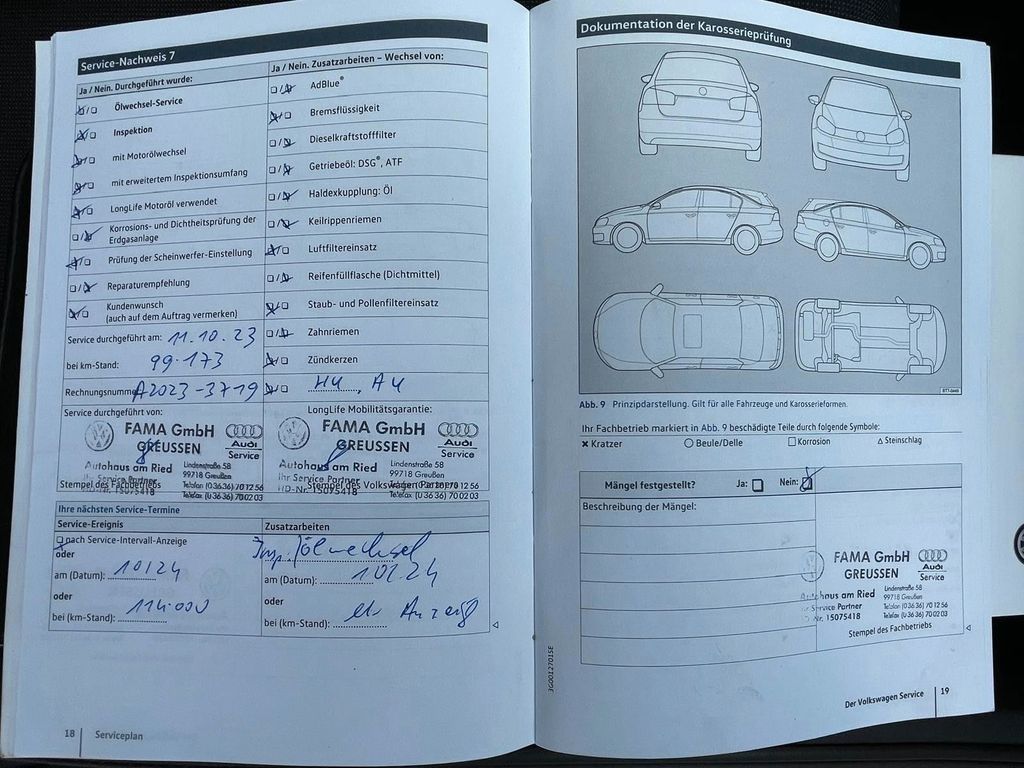 Service-Nachweis 7
Ja / Nein. Durchgeführt wurde:
Ölwechsel-Service
Inspektion
mit Motorölwechsel
mit erweitertem Inspektionsumfang
LongLife Motoröl verwendet
Korrosions- und Dichtheitsprüfung der
Erdgasanlage
Prüfung der Scheinwerfer-Einstellung
Reparaturempfehlung
Kundenwunsch
(auch auf dem Auftrag vermerken)
Service durchgeführt am: 11.10.23
bei km-Stand: 99.173
Rechnungsnumm A2023-3719
Service durchgeführt von:
FAMA GmbH
GREUSSEN
Audi
Service
Autohaus am Ried
Ihr Service Partner
HD-Nr. 15075418
Lindenstraße 58
99718 Greußen
Telefon (0 36 36) 70 12 56
Telefax (0 36 36) 70 02 03
Stempel des Fachbetriebs
Ja / Nein. Zusatzarbeiten – Wechsel von:
AdBlue®
Bremsflüssigkeit
Dieselkraftstofffilter
Getriebeöl: DSG®, ATF
Haldexkupplung: Öl
Keilrippenriemen
Luftfiltereinsatz
Reifenfüllflasche (Dichtmittel)
Staub- und Pollenfiltereinsatz
Zahnriemen
Zündkerzen
HU, AU
LongLife Mobilitätsgarantie:
FAMA GmbH
GREUSSEN
Audi
Service
Autohaus am Ried
Ihr Service Partner
HD-Nr. 15075418
Lindenstraße 58
99718 Greußen
Telefon (0 36 36) 70 12 56
Telefax (0 36 36) 70 02 03
Stempel des Volkswagen Partners
Ihre nächsten Service-Termine
Service-Ereignis
nach Service-Intervall-Anzeige
oder
am (Datum): 10/24
oder
bei (km-Stand): 114.000
Zusatzarbeiten
Insp. Ölwechsel
am (Datum):
oder
bei (km-Stand):
18
Serviceplan
Dokumentation der Karosserieprüfung
BT7-0449
Abb. 9 Prinzipdarstellung. Gilt für alle Fahrzeuge und Karosserieformen.
Ihr Fachbetrieb markiert in Abb. 9 beschädigte Teile durch folgende Symbole:
× Kratzer ○ Beule/Delle □ Korrosion △ Steinschlag
Mängel festgestellt? Ja: Nein:
Beschreibung der Mängel:
FAMA GmbH
GREUSSEN
Audi
Service
Autohaus am Ried
Service Partner
Nr. 15075418
Lindenstraße 58
99718 Greußen
Telefon (0 36 36) 70 12 56
Telefax (0 36 36) 70 02 03
Stempel des Fachbetriebs
3G0012701SE
Der Volkswagen Service
19